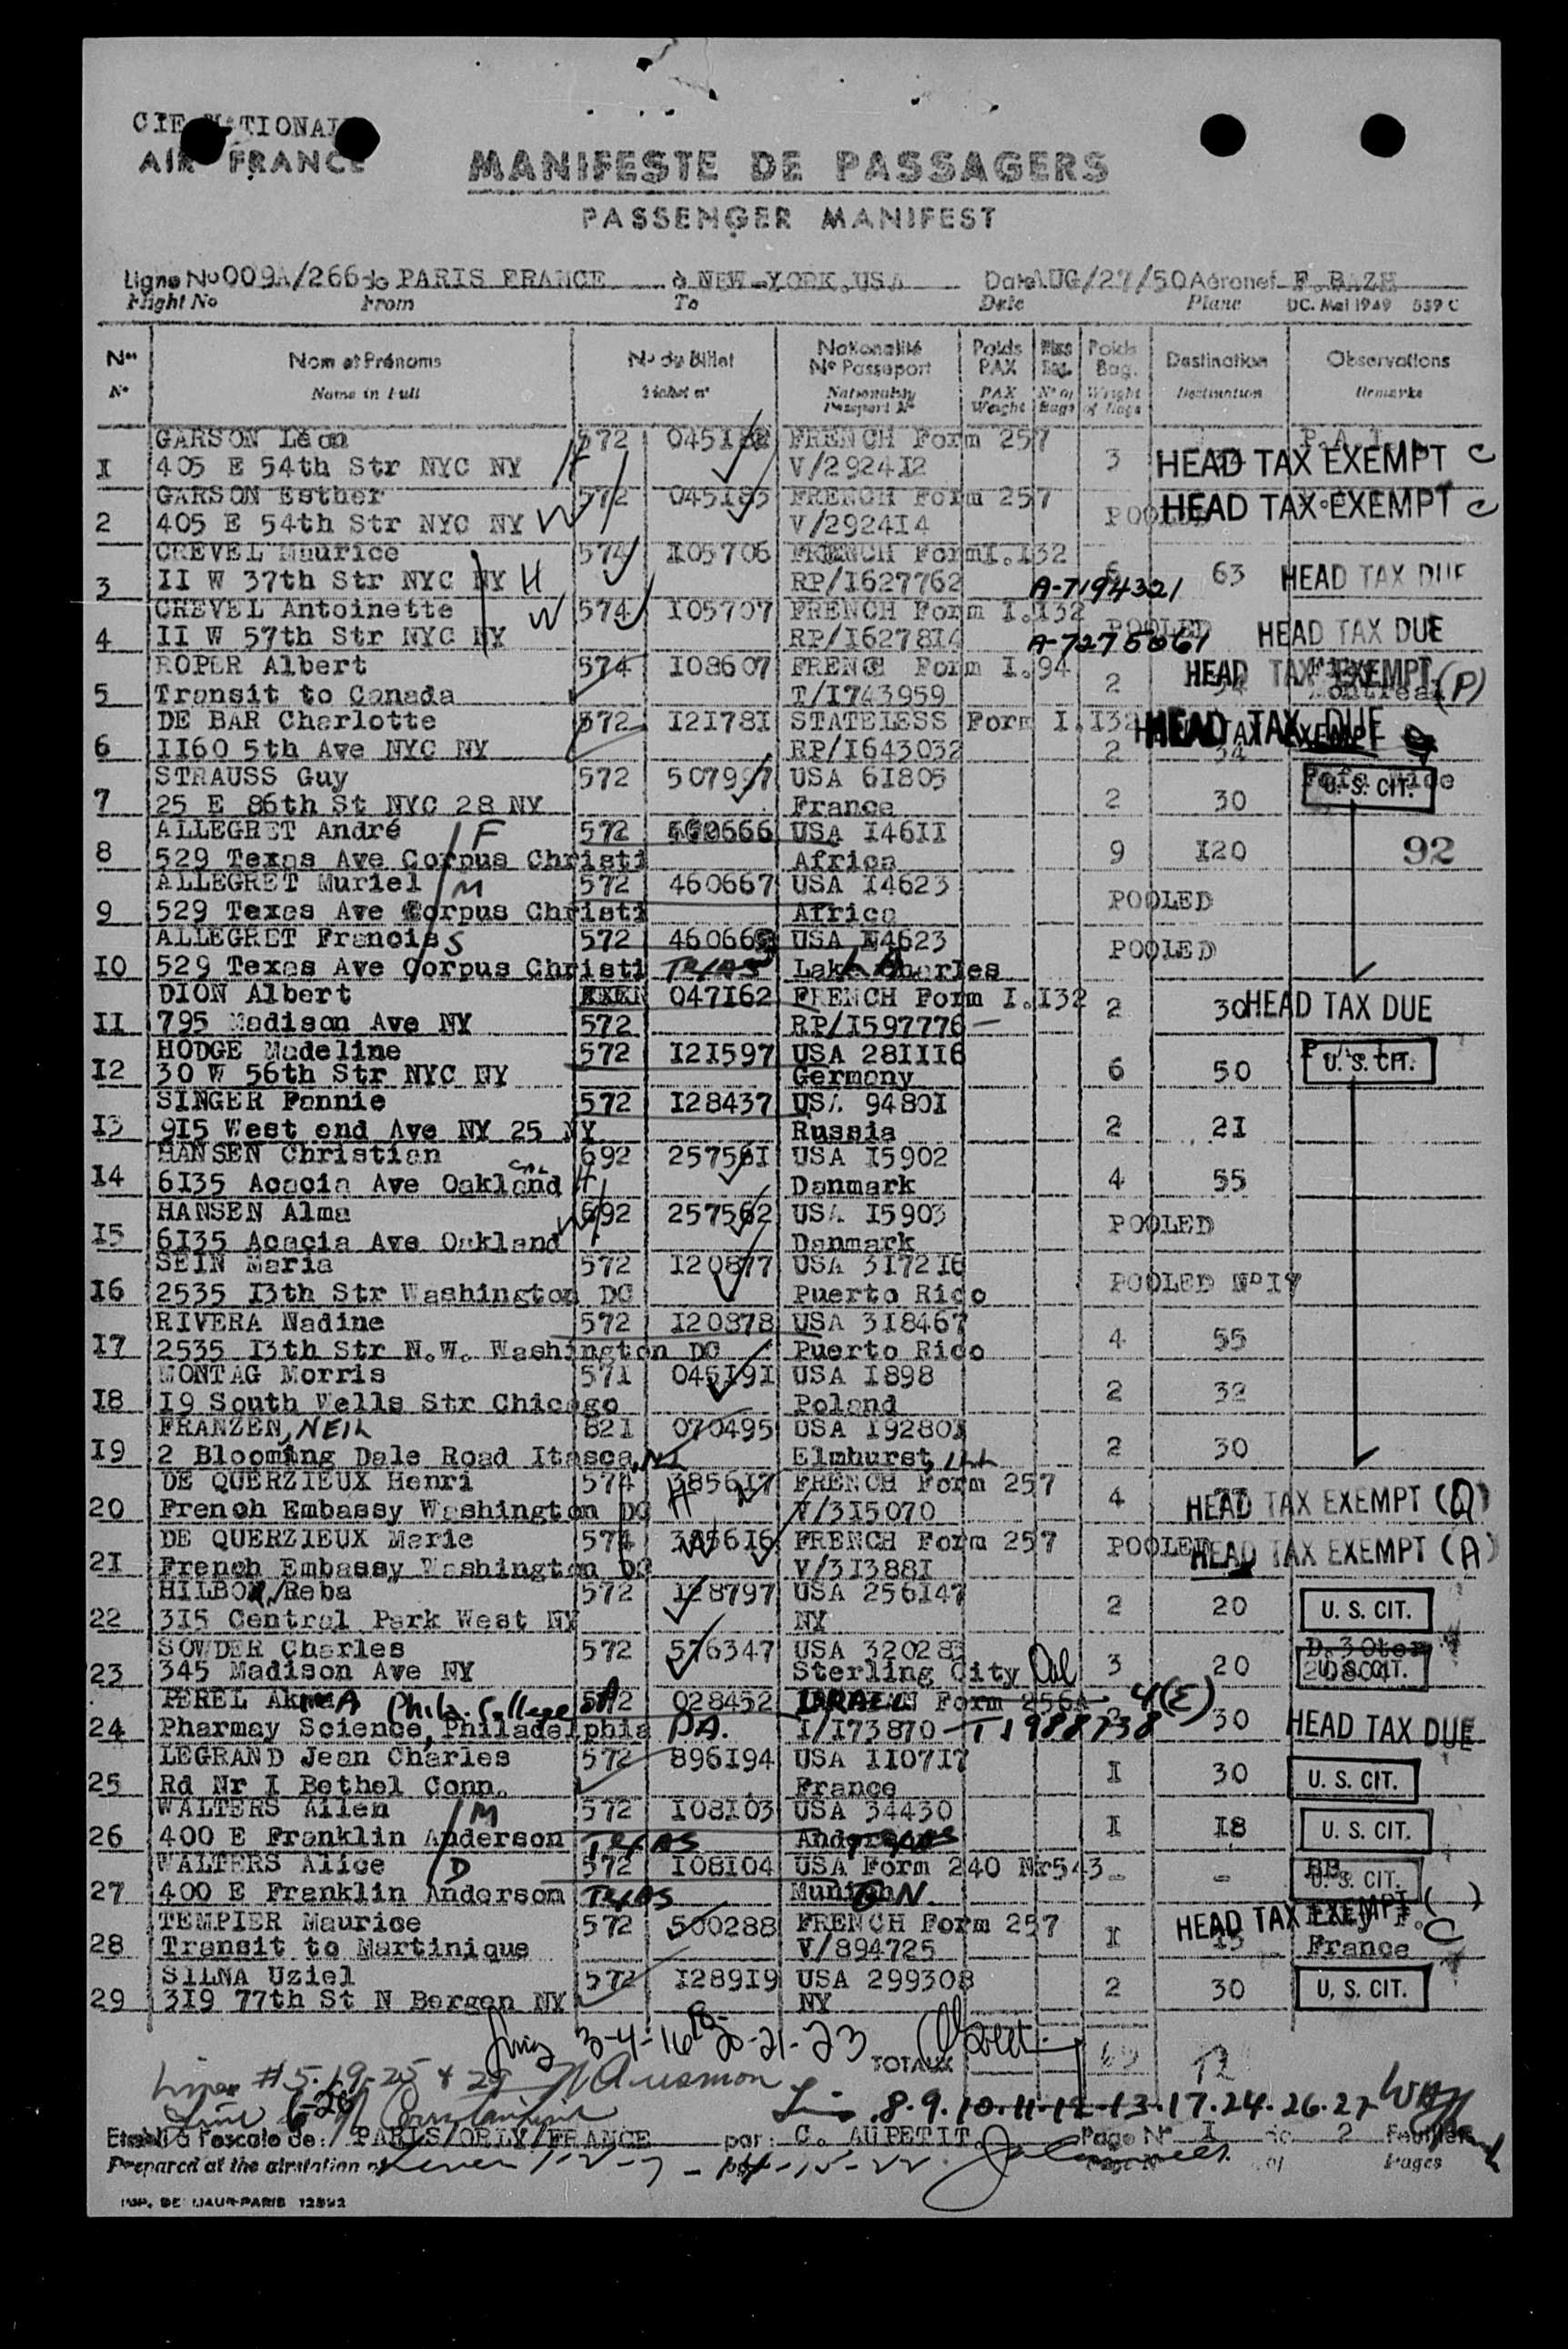 CIE NATIONAL
AIR FRANCE
MANIFESTE DE PASSAGERS
PASSENGER MANIFEST
Ligne No 009A/266 de PARIS FRANCE à NEW-YORK.USA Date AUG/27/50 Aéronef F.BAZH
Flight No From To Date Plane DC. Mai 1949 559 C
Nos Nom et Prénoms No du Billet Nationalité No Passeport Poids PAX Poids Bag. Destination Observations
No Name in Full Ticket no Nationality Passport No PAX Weight No of Bags Weight of Bags Destination Remarks
GARSON Léon 572 FRENCH Form 257
I 405 E 54th Str NYC NY H V/2924I2 3 HEAD TAX EXEMPT C
GARSON Esther 572 045I83 FRENCH Form 257
2 405 E 54th Str NYC NY W V/2924I4 POOLED HEAD TAX EXEMPT C
CREVEL Maurice 574 I05706 FRENCH FormI.I32
3 II W 37th Str NYC NY H RP/I627762 A-7194321 6 63 HEAD TAX DUE
CREVEL Antoinette W 574 I05707 FRENCH Form I.I32
4 II W 57th Str NYC NY RP/I6278I4 POOLED HEAD TAX DUE
ROPER Albert 574 I08607 FRENCH Form I.94
5 Transit to Canada T/I743959 2 HEAD TAX EXEMPT Montreal (P)
DE BAR Charlotte 572 I2I78I STATELESS Form I.I32
6 II60 5th Ave NYC NY RP/I643032 2 34 HEAD TAX DUE
STRAUSS Guy 572 507997 USA 6I805
7 25 E 86th St NYC 28 NY France 2 30 U. S. CIT.
ALLEGRET André F 572 460666 USA I46II
8 529 Texas Ave Corpus Christi Africa 9 I20 92
ALLEGRET Muriel M 572 460667 USA I4623
9 529 Texas Ave Corpus Christi Africa POOLED
ALLEGRET Francis S 572 USA I4623
IO 529 Texas Ave Corpus Christi TEXAS Lake Charles POOLED
DION Albert 047I62 FRENCH Form I.I32
II 795 Madison Ave NY 572 RP/I597776 2 30 HEAD TAX DUE
HODGE Madeline 572 I2I597 USA 28III6
I2 30 W 56th Str NYC NY Germany 6 50 U. S. CIT.
SINGER Fannie 572 I28437 USA 9480I
I3 9I5 West end Ave NY 25 NY Russia 2 2I
HANSEN Christian 692 25756I USA I5902
I4 6I35 Acacia Ave Oakland CAL H Danmark 4 55
HANSEN Alma W 692 257562 USA I5903
I5 6I35 Acacia Ave Oakland Danmark POOLED
SEIN Maria 572 I20877 USA 3I72I6
I6 2535 I3th Str Washington DC Puerto Rico POOLED NoI7
RIVERA Nadine 572 I20878 USA 3I8467
I7 2535 I3th Str N.W. Washington DC Puerto Rico 4 55
MONTAG Morris 57I 045I9I USA I898
I8 I9 South Wells Str Chicago Poland 2 32
FRANZEN, NEIL 82I 070495 USA I9280I
I9 2 Blooming Dale Road Itasca, Elmhurst, ILL 2 30
DE QUERZIEUX Henri 574 3856I7 FRENCH Form 257
20 French Embassy Washington DC H V/3I5070 4 HEAD TAX EXEMPT (A)
DE QUERZIEUX Marie 574 3856I6 FRENCH Form 257
2I French Embassy Washington DC W V/3I388I POOLED HEAD TAX EXEMPT (A)
HILBON, Reba 572 I28797 USA 256I47
22 3I5 Central Park West NY NY 2 20 U. S. CIT.
SOWDER Charles 572 576347 USA 32028
23 345 Madison Ave NY Sterling City 3 20 U. S. CIT.
PEREL Akiva Phila. College 572 028452 ISRAEL Form 256A 4(E)
24 Pharmay Science, Philadelphia PA. I/I73870 T1988738 2 30 HEAD TAX DUE
LEGRAND Jean Charles 572 896I94 USA II07I7
25 Rd Nr I Bethel Conn. France I 30 U. S. CIT.
WALTERS Allen M 572 I08I03 USA 34430
26 400 E Franklin Anderson TEXAS Anderson TEXAS I I8 U. S. CIT.
WALTERS Alice D 572 I08I04 USA Form 240 Nr543
27 400 E Franklin Anderson TEXAS Munich GN - - U. S. CIT.
TEMPIER Maurice 572 500288 FRENCH Form 257
28 Transit to Martinique V/894725 I I5 HEAD TAX EXEMPT ( ) C France
SILNA Uziel 572 I28919 USA 299308
29 3I9 77th St N Bergen NY NY 2 30 U. S. CIT.
3-4-16-18-20-21-23
TOTAUX 69
Lines #5-19-25 & 29
Line 6-28 8.9.10.11-12-13.17.24.26.27
Etabli à l'escale de: PARIS/ORLY/FRANCE par: C. AUPETIT. Page No I de 2 Feuillets
Prepared at the airstation of by Page No of Pages
1-2-7-14-15-22
IMP. DE LIAUR-PARIS 12892